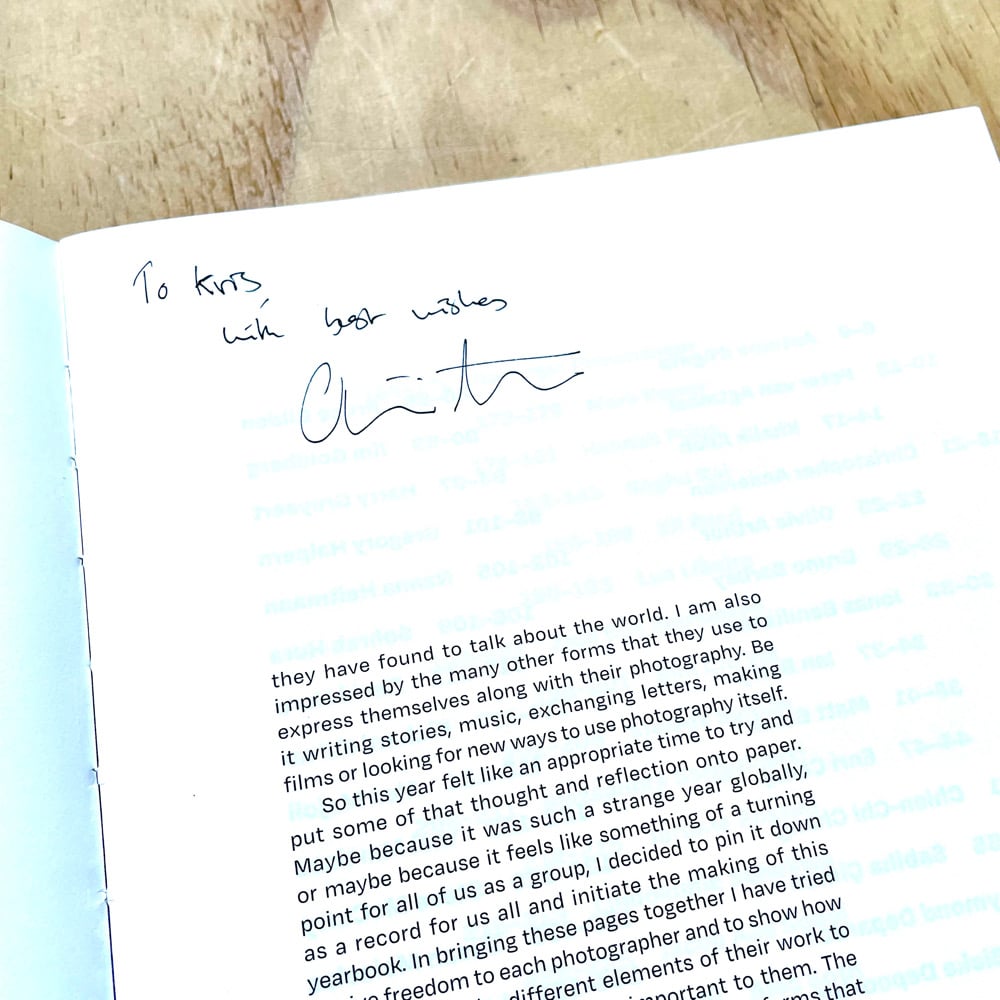 To Kris,
with best wishes
they have found to talk about the world. I am also
impressed by the many other forms that they use to
express themselves along with their photography. Be
it writing stories, music, exchanging letters, making
films or looking for new ways to use photography itself.
So this year felt like an appropriate time to try and
put some of that thought and reflection onto paper.
Maybe because it was such a strange year globally,
or maybe because it feels like something of a turning
point for all of us as a group, I decided to pin it down
as a record for us all and initiate the making of this
yearbook. In bringing these pages together I have tried
freedom to each photographer and to show how
different elements of their work to
important to them. The
forms that